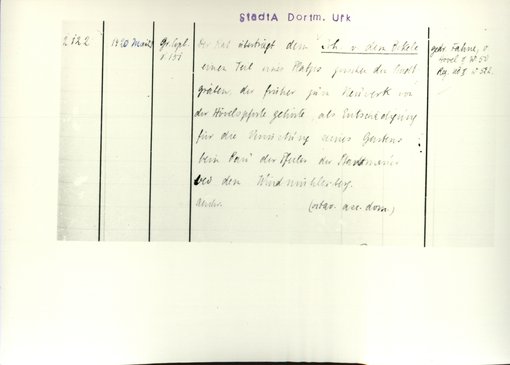 StadtA Dortm. Urk
2122
1490 März
Gr. Cpl.
Der Rat überträgt dem Joh v. dem Berke
einen Teil eines Platzes zwischen den Stadt
gräben, der früher zum Neuwerk von
der Hövelspforte gehörte, als Entschädigung
für die Vernichtung seines Gartens
beim Bau der Pfeiler der Stadtmauer
bei dem Windmühlenberg.
Abschr.
gedr. Fahne, v.
Hövel